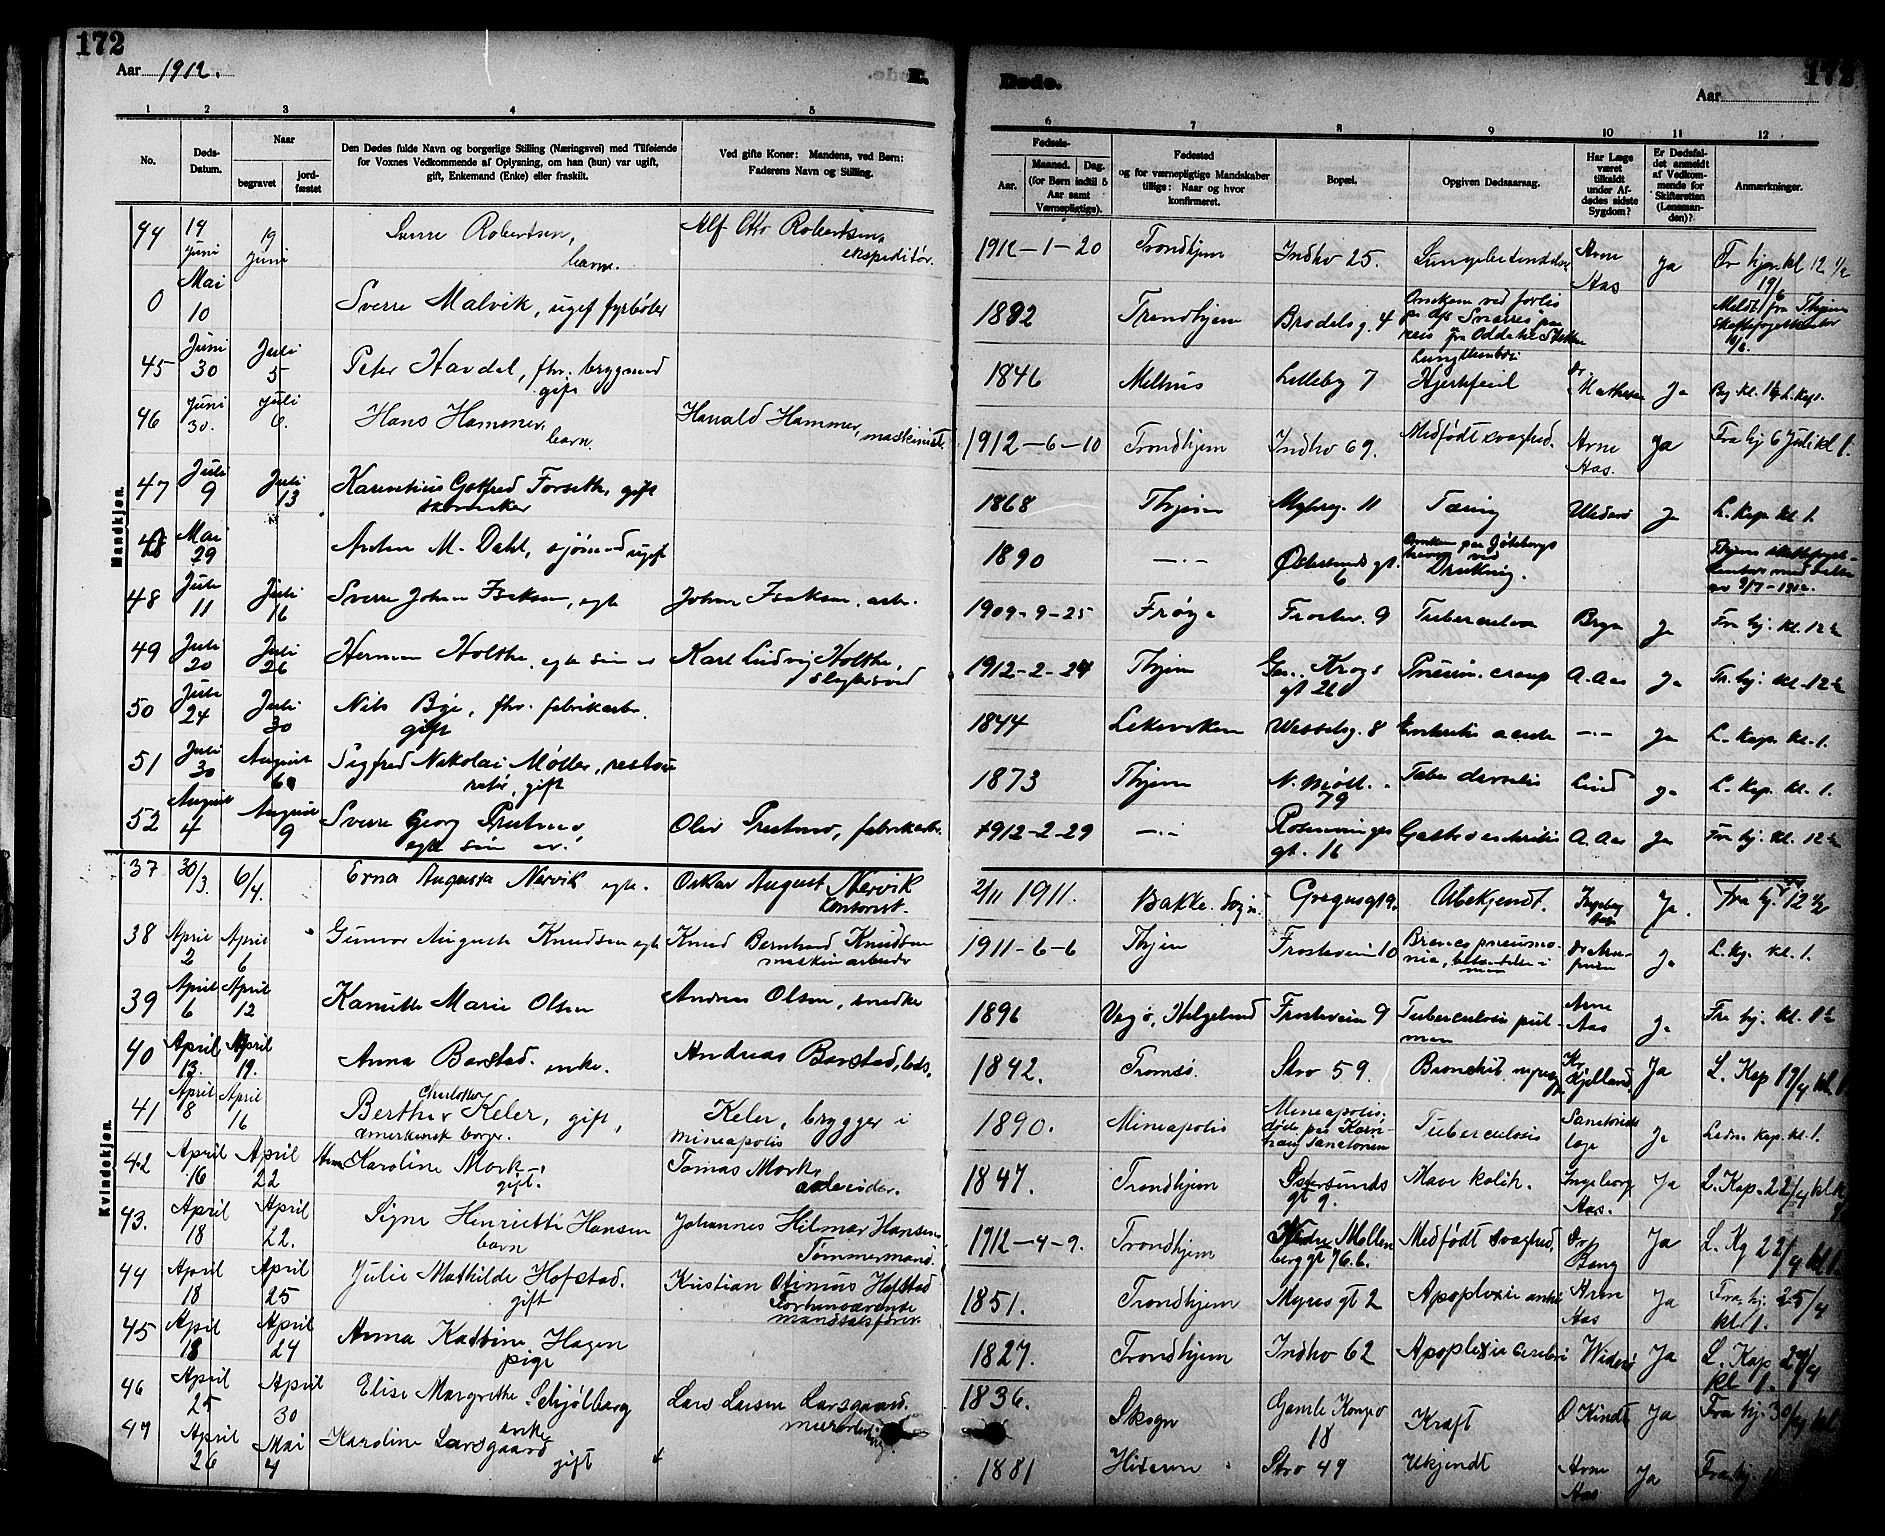 172
Aar 1912.
E.
1 2 3 4 5
No.
Døds-Datum.
Naar
begravet
jord-fæstet
Den Dødes fulde Navn og borgerlige Stilling (Næringsvei) med Tilføiende
for Voxnes Vedkommende af Oplysning, om han (hun) var ugift,
gift, Enkemand (Enke) eller fraskilt.
Ved gifte Koner: Mandens, ved Børn:
Faderens Navn og Stilling.
Døde.
172
Aar
6 7 8 9 10 11 12
Fødsels-
Aar.
Maaned. Dag.
(for Børn indtil 5
Aar samt
Værnepligtige).
Fødested
og for værnepligtige Mandskaber
tillige: Naar og hvor
konfirmeret.
Bopæl.
Opgiven Dødsaarsag.
Har Læge
været
tilkaldt
under Af-
dødes sidste
Sygdom?
Er Dødsfal-
det anmeldt
af Vedkom-
mende for
Skifteretten
(Lensman-
den)?
Anmærkninger.
Mandkjøn.
44 14 juni 19 juni Sverre Robertsen, barn. Alf Otto Robertsen, ekspeditør. 1912-1-20 Trondhjem Indhv 25. Lungebetændelse Arne Aas Ja Fr hjm kl 12 1/2 19/6
0 Mai 10 Sverre Malvik, ugif fyrbøter 1892 Trondhjem Brodals g. 4
45 Juni 30 Juli 5 Peter Havdal, fhv. brygmand gift 1846 Melhus Lilleby 7 Hjertefeil Ja
46 Juni 30. Juli 6. Hans Hammer, barn. Harald Hammer, maskinist. 1912-6-10 Trondhjem Indhv 69. Medfödt svaghed. Arne Aas. Ja Fra hj 6 Juli kl 1.
47 Juli 9 Juli 13 Gotfred Forseth, gift 1868 Thjem 11 Tæring Widerö J L. Kap. kl. 1.
48 Mai 29 Anton M. Dahl, sjömand ugift 1890 —"— Östersunds gt. Drukning.
48 Juli 11 Juli 16 Sverre Johan Isaksen, egte Johan Isaksen, arb. 1909-9-25 Frøya Frostav. 9 Tuberculose Ja Fra hj. kl. 12 1/2
49 Juli 20 Juli 26 Herman Holthe, egte sön av Karl Ludvig Holthe, 1912-2-24 Thjem Gen. Krogs gt 26 Pneum. croup A. Aas Ja Fr. hj. kl. 12 1/2
50 Juli 24 Juli 30 Nils Bye, fhv. fabrikarb. gift 1844 Leksviken Wesselsg. 8 Enteritis acuta —"— Ja L. Kap. kl. 1.
51 Juli 30 August 6 Sigfred Nikolai Møller, restauratør, gift 1873 Thjem N. Möll. 79 Tabes dorsalis Lind Ja L. Kap. kl. 1.
52 August 4 August 9 Sverre Georg Prestmo, egte sön av: Olav Prestmo, fabrikarb. 1912-2-29 —"— gt. 16 Gastroenteritis A. Aas Ja Fra hj. kl. 12 1/2
Kvindekjøn.
37 30/3. 6/4. Erna Augusta Nervik egte. Oskar August Nervik kontorist. 2/11 1911. Bakke Sogn. Gregusgt 9. Ubekjendt. Ingeborg Aas Ja. Fra hj. 12 1/2
38 April 2 April 6 Gunvor Augusta Knudsen egte Knud Bernhard Knudsen maskinarbeider 1911-6-6 Thjem Frostavein 10 Ja L. Kp. kl. 1.
39 April 6 April 12 Kanutte Marie Olsen Andreas Olsen, snedker 1896 Vegö, Helgeland Frostavein 9 Tuberculosis pulmon Arne Aas Ja Fra hj. kl.
40 April 13. April 19. Anna Barstad. enke. Andreas Barstad, lods. 1842. Tromsö. Stro 59. Kjelland Ja L. Kap 19/4 kl 1.
41 April 8 April 16 Berthe Charlotte Keler, gift, amerikansk borger. Keler, brygger i Mineapolis 1890. Mineapolis Mineapolis. döde paa Sanatorium Tuberculosis Ja Ladm. kap. kl. 1.
42 April 16 April 22 Karoline Mork. gift. Tomas Mork arbeider. 1847. Trondhjem Östersunds gt 9. Mave kolik. Ingeborg Aas. Ja L. Kap. 22/4 kl
43. April 18 April 22. Signe Henriette Hansen barn Johannes Hilmar Hansen Tømmermand. 1912-4-9. Trondhjem Nedre Møllenberg gt 76.b. Medfödt svaghed. Dr Bang Ja L. Kp 22/4 kl 1.
44 April 18 April 25 Julie Mathilde Hofstad. gift Kristian Hofstad Forhenværende 1851. Trondhjem Myres gt 2 Apoplexie Arne Aas Ja Fra hj. 25/4 kl 1.
45 April 18 April 24 Anna Katrine Hagen pige 1827. Trondhjem Indhv 62 Apoplexie cerebri Widerö Ja L. Kap 24/4 kl 1.
46 April 25 April 30 Elise Margrethe Schjølberg enke 1836. Skogn Gamle Kongev 18 Kræft O Kindt Ja Fra hj. 30/4 kl
47 April 26 Mai 4 Karoline Larsgaard gift Lars Larsen Larsgaard. 1881 Hiteren Stro 49 Ukjendt Arne Aas Ja Fra hj.